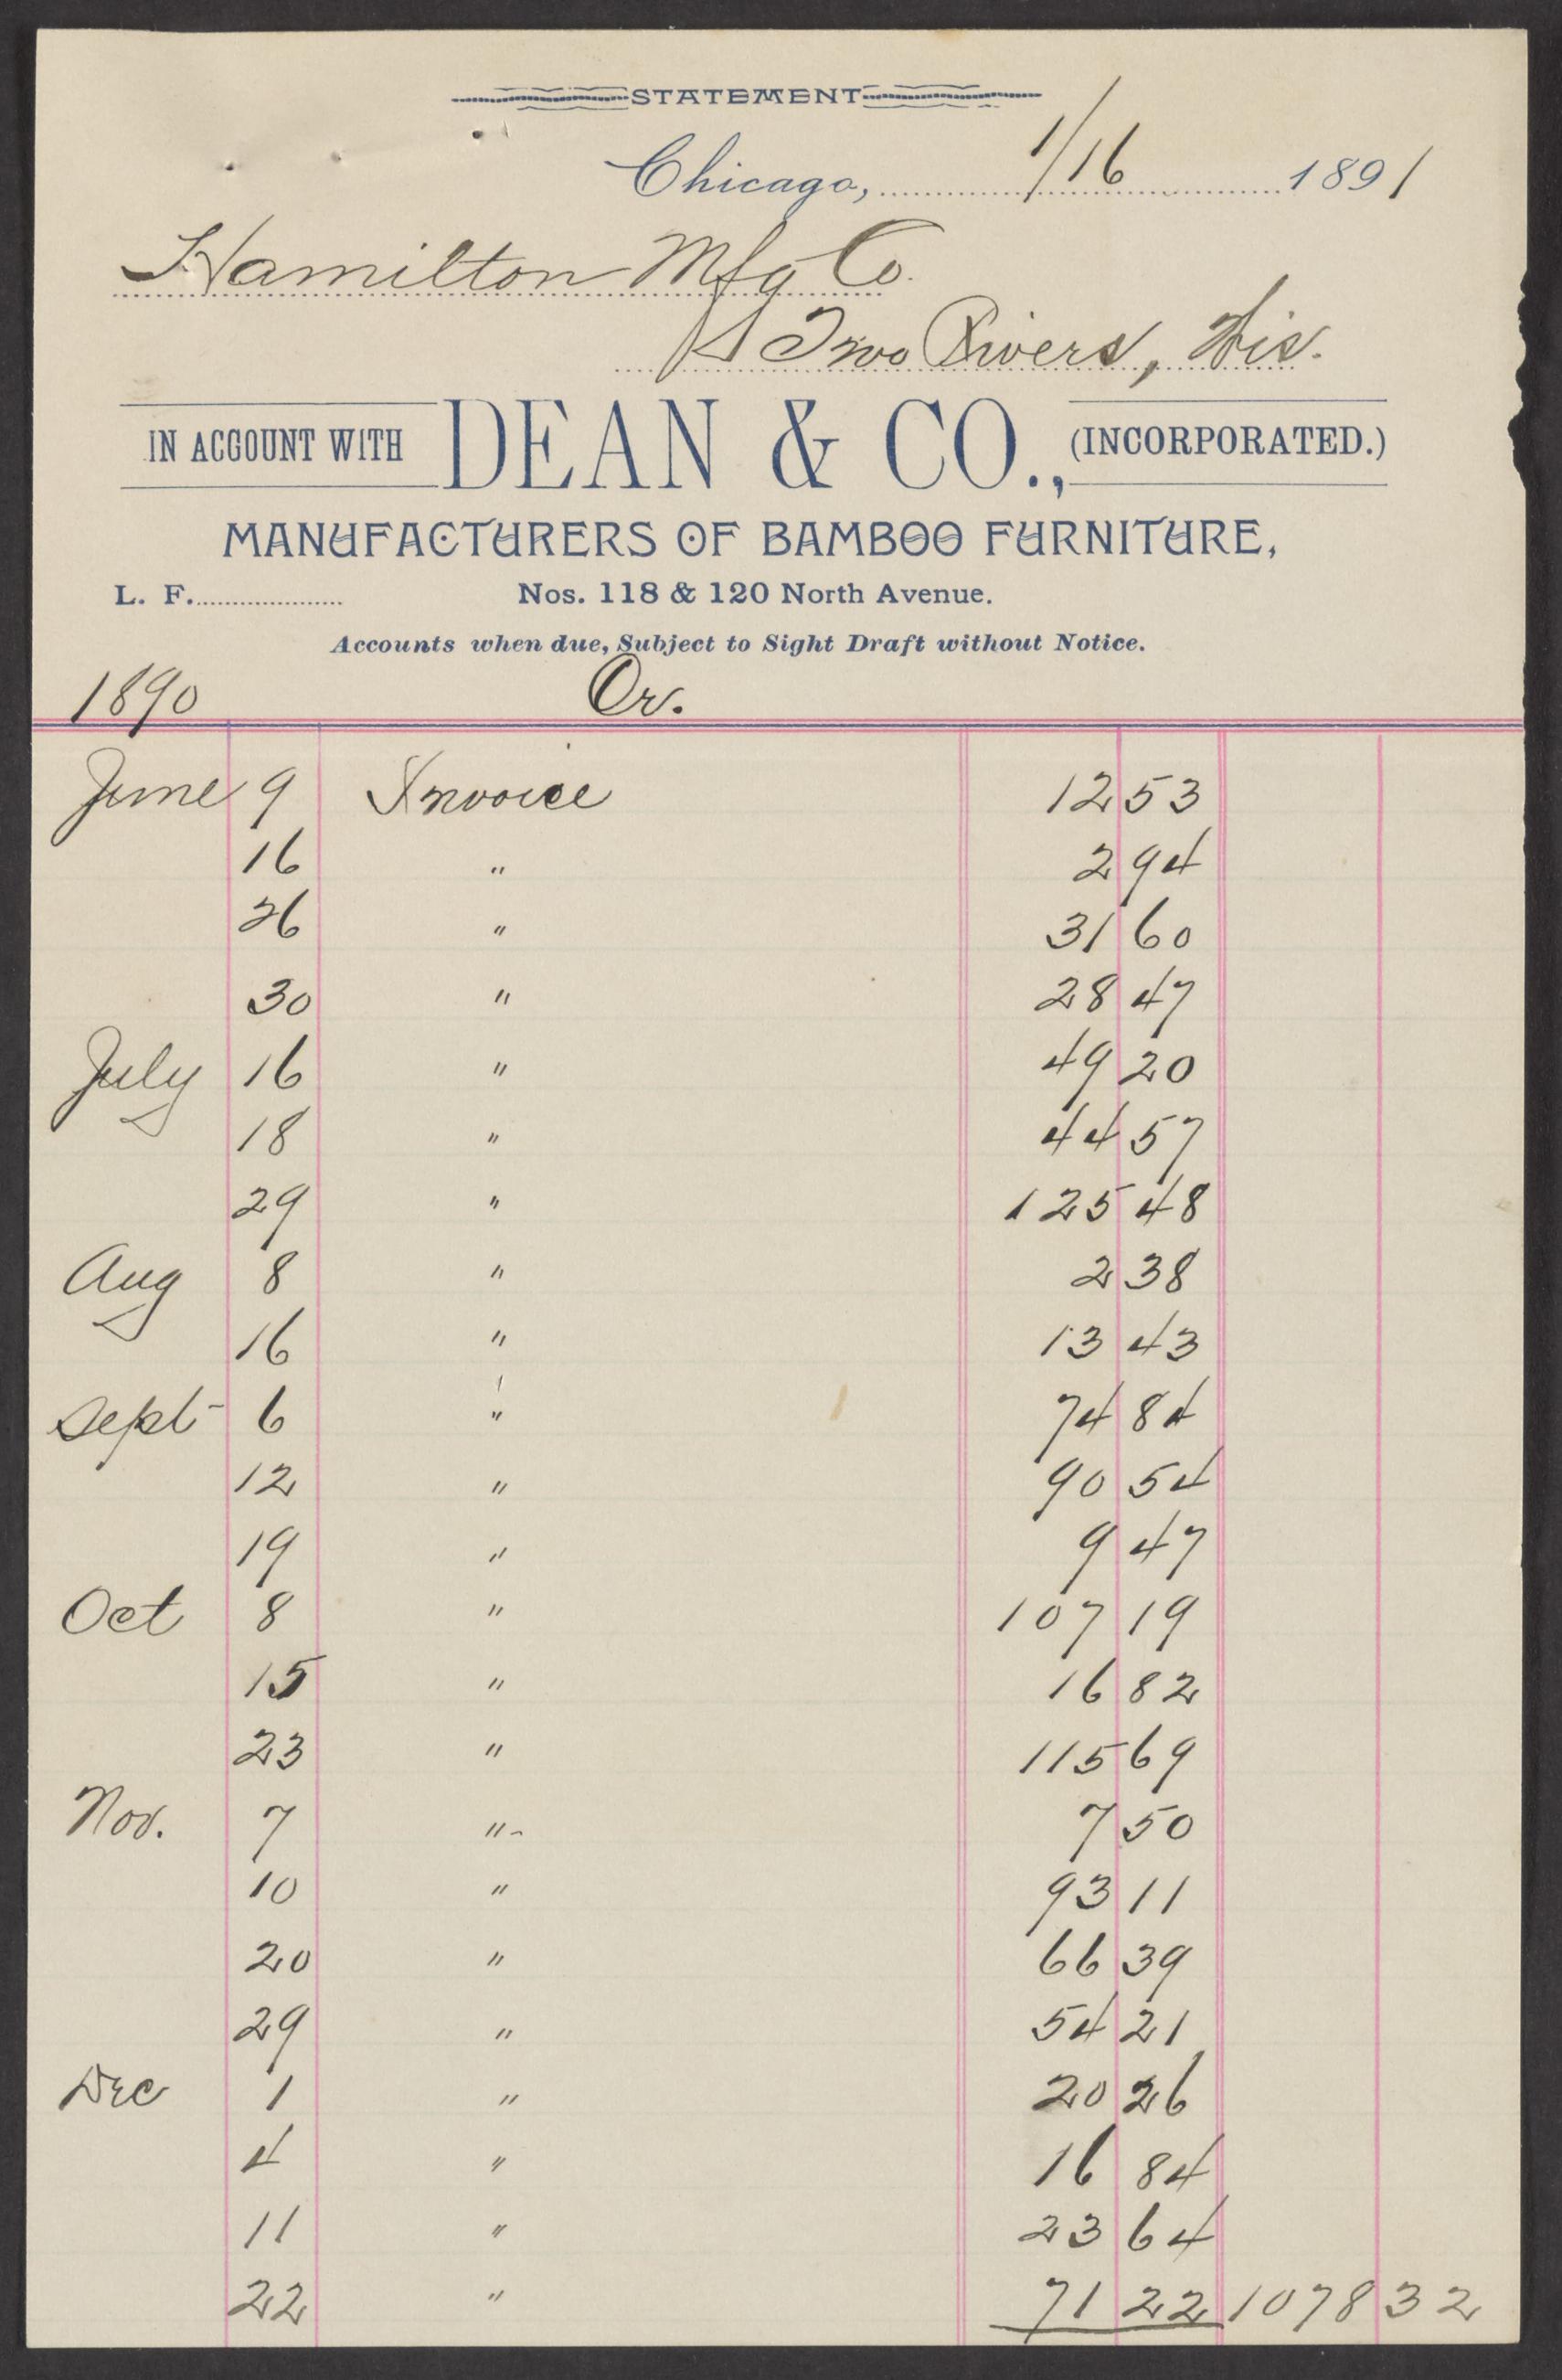 STATEMENT
Chicago, 1/16 1891
Hamilton Mfg Co.
Two Rivers, Wis.
IN ACCOUNT WITH DEAN & CO., (INCORPORATED.)
MANUFACTURERS OF BAMBOO FURNITURE,
L. F. Nos. 118 & 120 North Avenue.
Accounts when due, Subject to Sight Draft without Notice.
1890 Cr.
June 9 Invoice 12 53
16 " 2 94
26 " 31 60
30 " 28 47
July 16 " 49 20
18 " 44 57
29 " 125 48
Aug 8 " 2 38
16 " 13 43
Sept 6 " 74 84
12 " 90 54
19 " 9 47
Oct 8 " 107 19
15 " 16 82
23 " 115 69
Nov. 7 " 7 50
10 " 93 11
20 " 66 39
29 " 54 21
Dec 1 " 20 26
4 " 16 84
11 " 23 64
22 " 71 22 1078 32